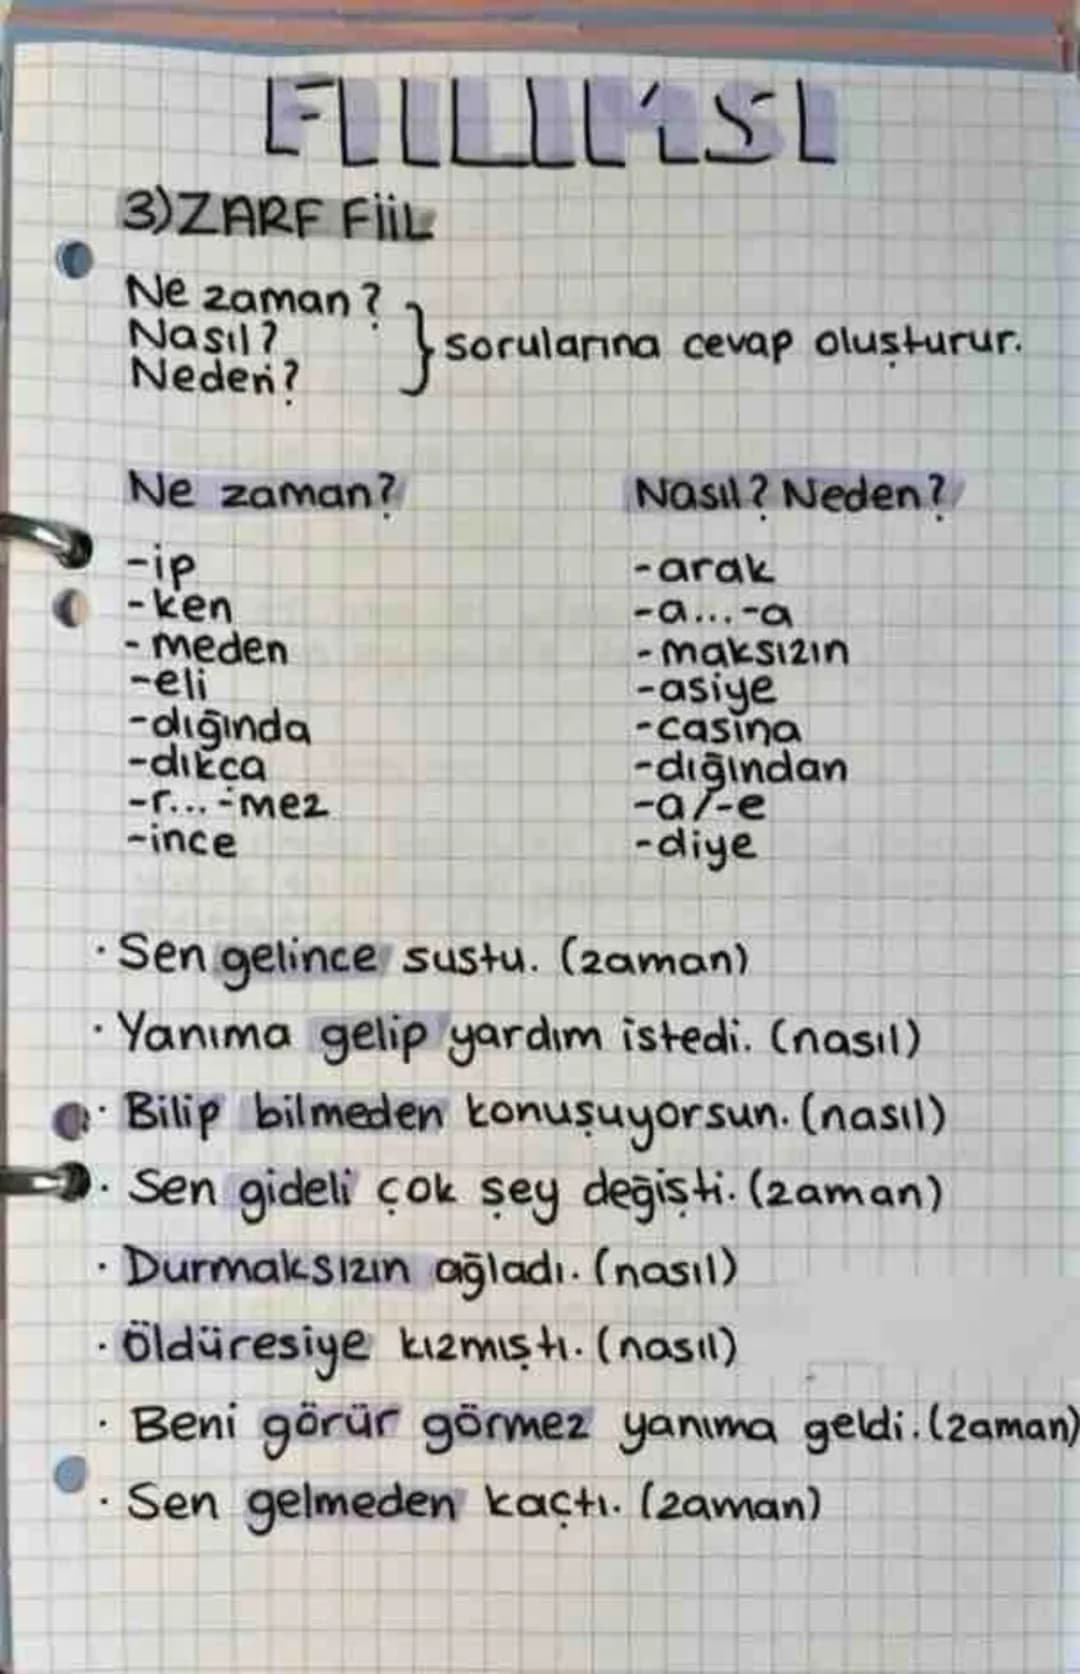 FİİLİMSİ
3)ZARF FİİL
Ne zaman?
Nasıl?
Neden?
sorularına cevap oluşturur.
Ne zaman?
-ip
-ken
-meden
-eli
-dığında
-dıkca
-r...-mez
-ince
Nasıl? Neden?
-arak
-a...-a
-maksızın
-asiye
-casına
-dığından
-a/-e
-diye
· Sen gelince sustu. (zaman)
· Yanıma gelip yardım istedi. (nasıl)
· Bilip bilmeden konuşuyorsun. (nasıl)
· Sen gideli çok şey değişti. (zaman)
· Durmaksızın ağladı. (nasıl)
· Öldüresiye kızmıştı. (nasıl)
· Beni görür görmez yanıma geldi. (zaman)
· Sen gelmeden kaçtı. (zaman)